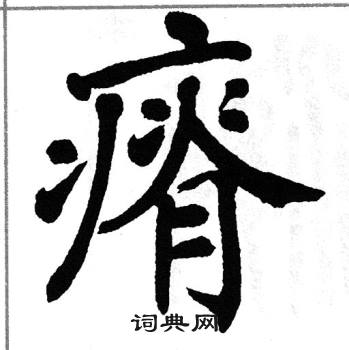 瘠
词典网